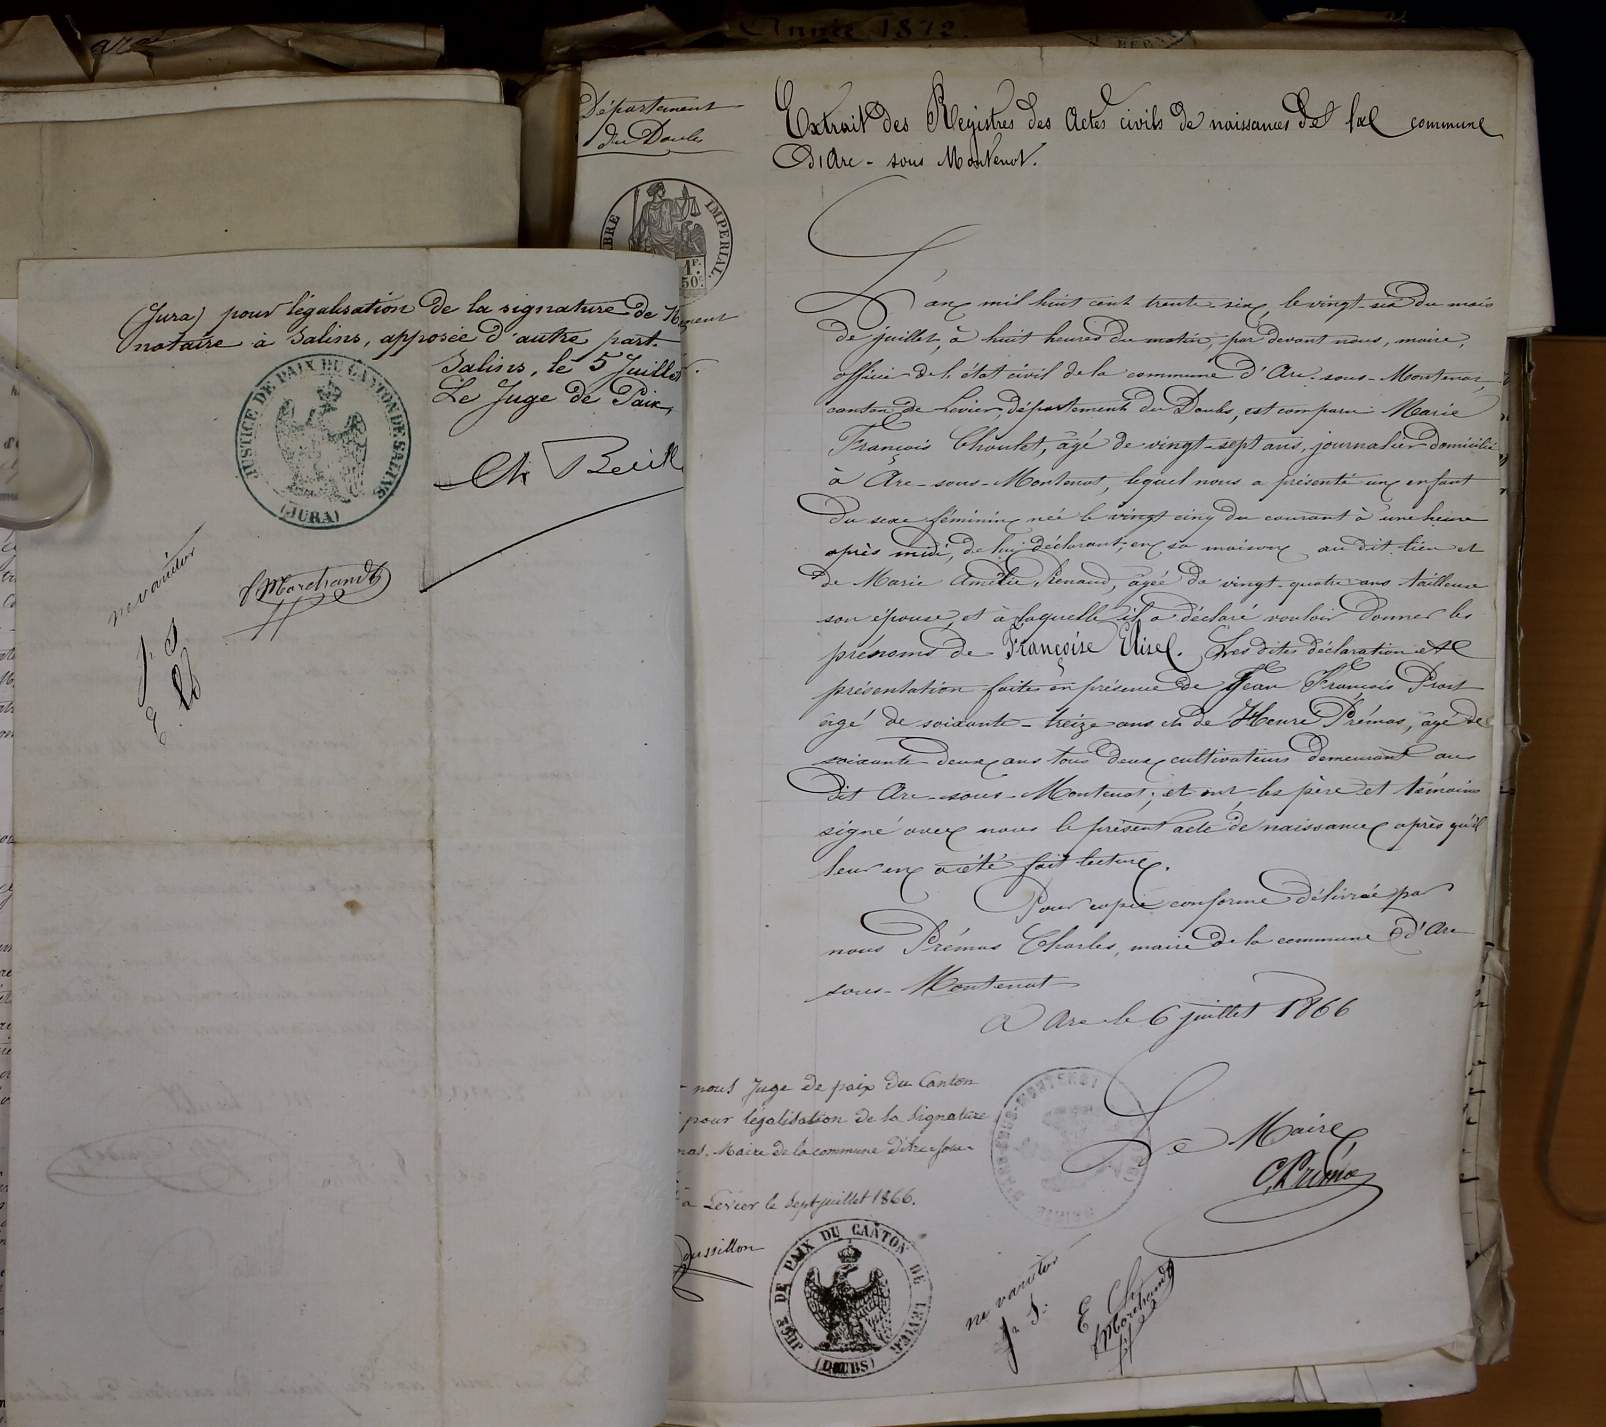 Année 1872.
Département
du Doubs
Extrait des Registres des Actes civils de naissances de la commune
d'Arc-sous Montenot.
IMPERIAL.
1F.
50c
L'an mil huit cent trente-six, le vingt-six du mois
de juillet, à huit heures du matin, par devant nous, maire,
officier de l'état civil de la commune d'Arc-sous-Montenot,
canton de Levier, département du Doubs, est comparu Marie
François Choulet, âgé de vingt-sept ans, journalier domicilié
à Arc-sous-Montenot, lequel nous a présenté un enfant
du sexe féminin, née le vingt cinq du courant à une heure
après midi, de lui déclarant, en sa maison au dit lieu et
de Marie Amélie Renaud, âgée de vingt-quatre ans tailleuse
son épouse, et à laquelle il a déclaré vouloir donner les
prénoms de Françoise Elise. Les dites déclaration et
présentation faites en présence de Jean François Prost
âgé de soixante-treize ans et de Henri Prémas, âgé de
soixante deux ans tous deux cultivateurs demeurant au
dit Arc-sous-Montenot; et ont les père et témoins
signé avec nous le présent acte de naissance après qu'il
leur en a été fait lecture.
Pour copie conforme délivrée par
nous Prémas Charles, maire de la commune d'Arc
sous-Montenot
A Arc le 6 juillet 1866
Le Maire,
C. Prémas
nous Juge de paix du Canton
pour légalisation de la signature
Maire de la commune d'Arc sous
à Levier le sept juillet 1866.
JUGE DE PAIX DU CANTON DE LEVIER
(DOUBS)
ne varietur
E Ch
Marchand
(Jura) pour légalisation de la signature de
notaire à Salins, apposée d'autre part.
Salins, le 5 Juillet
Le Juge de Paix,
JUSTICE DE PAIX DU CANTON DE SALINS
(JURA)
ne varietur
Marchand